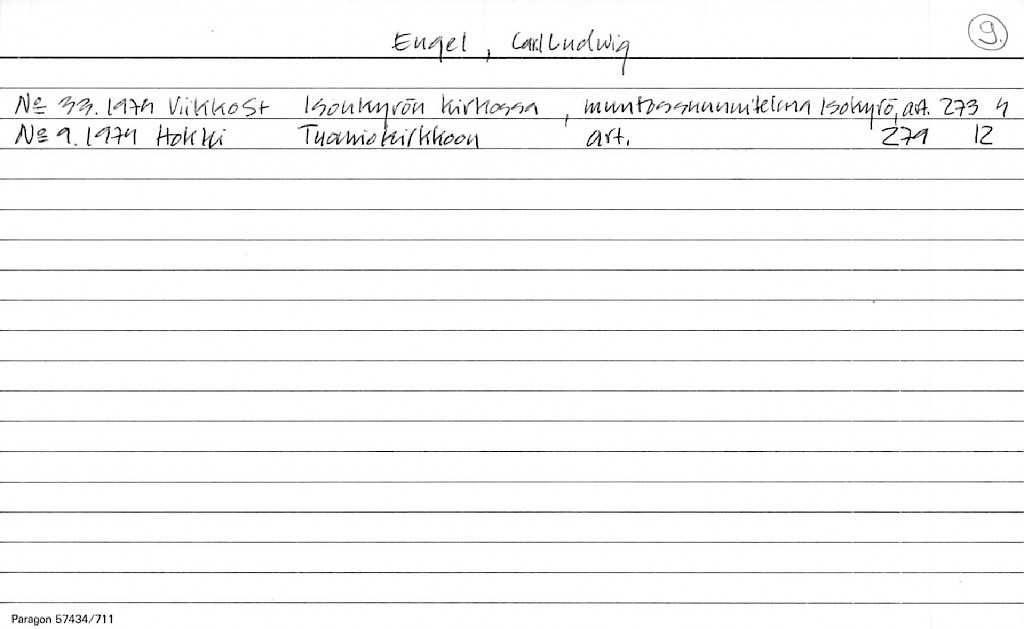 Engel, Carl Ludwig
9.
No 33.1974 ViikkoSt Isonkyrön kirkossa, muutossuunnitelma Isokyrö, art. 273 4
No 9.1974 Tuomiokirkkoon art. 279 12
Paragon 57434/711